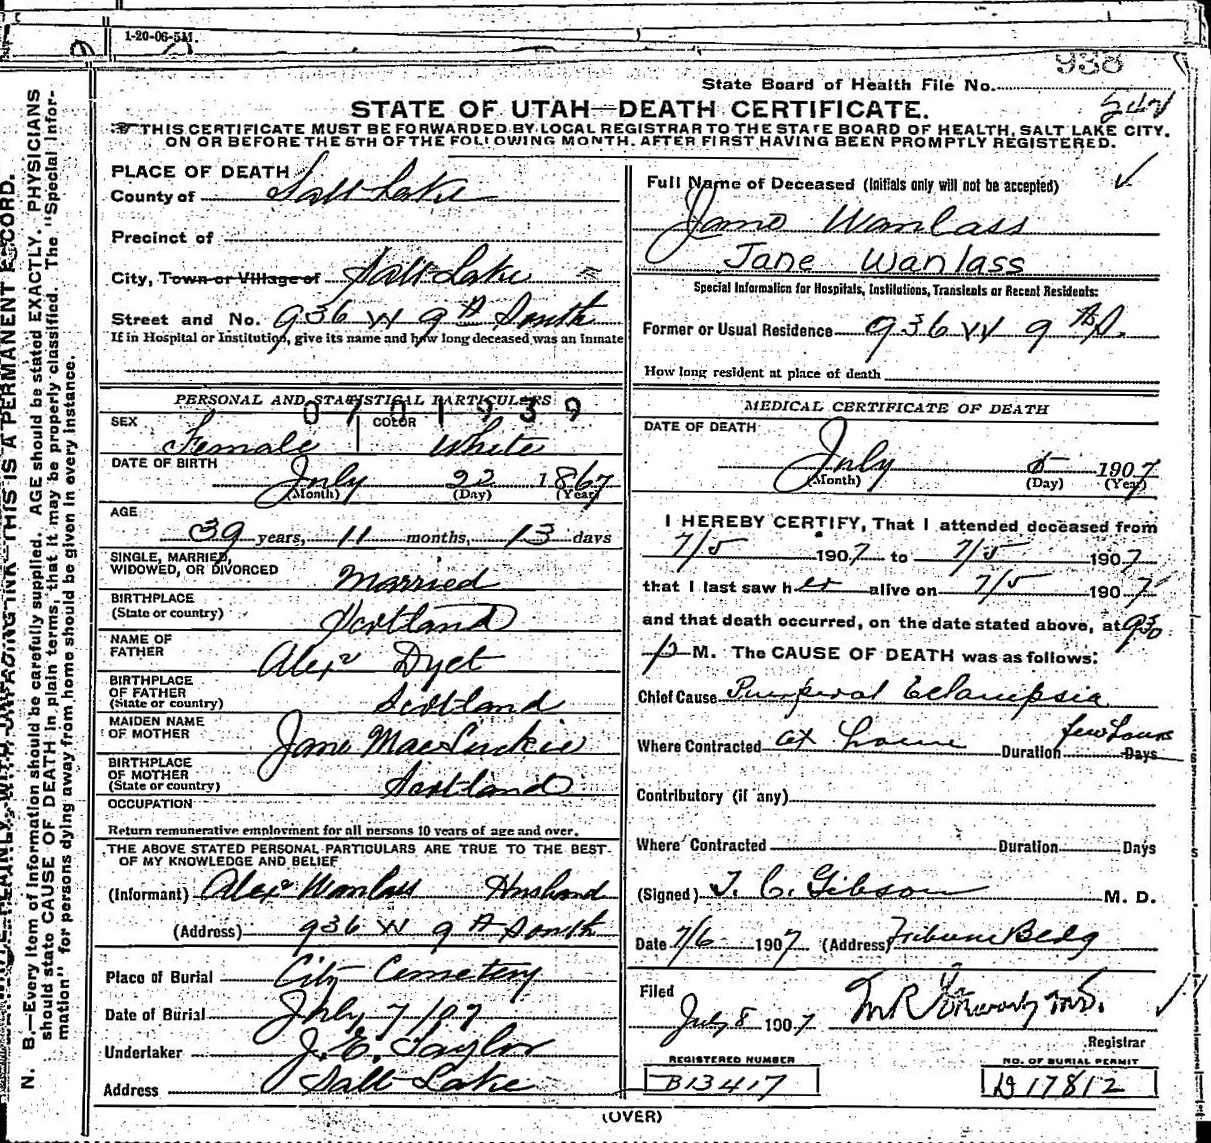 1-20-06-5M.
938
State Board of Health File No.
STATE OF UTAH—DEATH CERTIFICATE.
THIS CERTIFICATE MUST BE FORWARDED BY LOCAL REGISTRAR TO THE STATE BOARD OF HEALTH, SALT LAKE CITY.
ON OR BEFORE THE 5TH OF THE FOLLOWING MONTH. AFTER FIRST HAVING BEEN PROMPTLY REGISTERED.
PLACE OF DEATH
County of Salt Lake
Precinct of
City, Town or Village of Salt Lake
Street and No. 936 W 9th South
If in Hospital or Institution, give its name and how long deceased was an Inmate
PERSONAL AND STATISTICAL PARTICULARS
0701939
SEX Female COLOR White
DATE OF BIRTH July 22 1867
(Month) (Day) (Year)
AGE
39 years, 11 months, 13 days
SINGLE, MARRIED,
WIDOWED, OR DIVORCED Married
BIRTHPLACE
(State or country) Scotland
NAME OF
FATHER Alexr Dyet
BIRTHPLACE
OF FATHER
(State or country) Scotland
MAIDEN NAME
OF MOTHER Jane MacLuckie
BIRTHPLACE
OF MOTHER
(State or country) Scotland
OCCUPATION
Return remunerative employment for all persons 10 years of age and over.
THE ABOVE STATED PERSONAL PARTICULARS ARE TRUE TO THE BEST
OF MY KNOWLEDGE AND BELIEF
(Informant) Alexr Wanlass Husband
(Address) 936 W 9th South
Place of Burial City Cemetery
Date of Burial July 7/07
Undertaker J. E. Taylor
Address Salt Lake
Full Name of Deceased (Initials only will not be accepted)
Jane Wanlass
Jane Wanlass
Special Information for Hospitals, Institutions, Transients or Recent Residents:
Former or Usual Residence 936 W 9th S.
How long resident at place of death
MEDICAL CERTIFICATE OF DEATH
DATE OF DEATH
July 5 1907
(Month) (Day) (Year)
I HEREBY CERTIFY, That I attended deceased from
7/5 1907 to 7/5 1907
that I last saw her alive on 7/5 1907
and that death occurred, on the date stated above, at 930
p M. The CAUSE OF DEATH was as follows:
Chief Cause Puerperal Eclampsia
Where Contracted at home Duration few hours Days
Contributory (if any)
Where Contracted Duration Days
(Signed) T. C. Gibson M. D.
Date 7/6 1907 (Address) Tribune Bldg
Filed
July 8 1907 M.D.
Registrar
REGISTERED NUMBER
B13417
NO. OF BURIAL PERMIT
D17812
(OVER)
THIS IS A PERMANENT RECORD.
N. B.—Every item of information should be carefully supplied. AGE should be stated EXACTLY. PHYSICIANS
should state CAUSE OF DEATH in plain terms, that it may be properly classified. The "Special Infor-
mation" for persons dying away from home should be given in every instance.